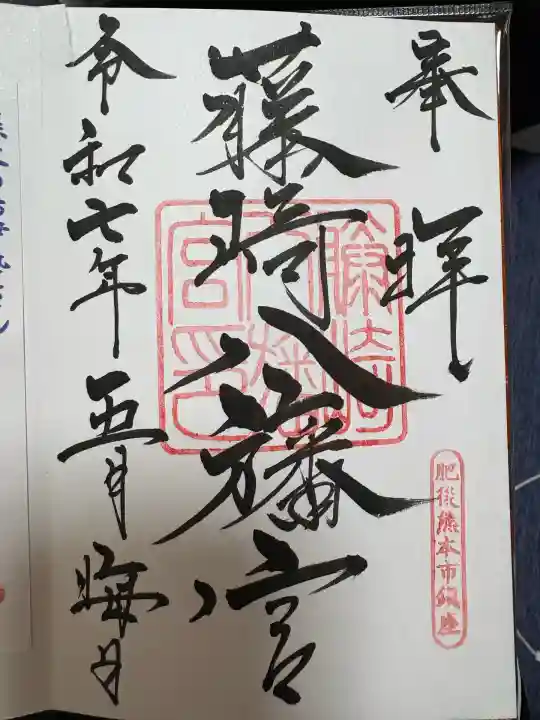 奉拜
肥後熊本市鎮座
藤崎八旛宮
藤崎
八旛
宮印
令和七年五月晦日